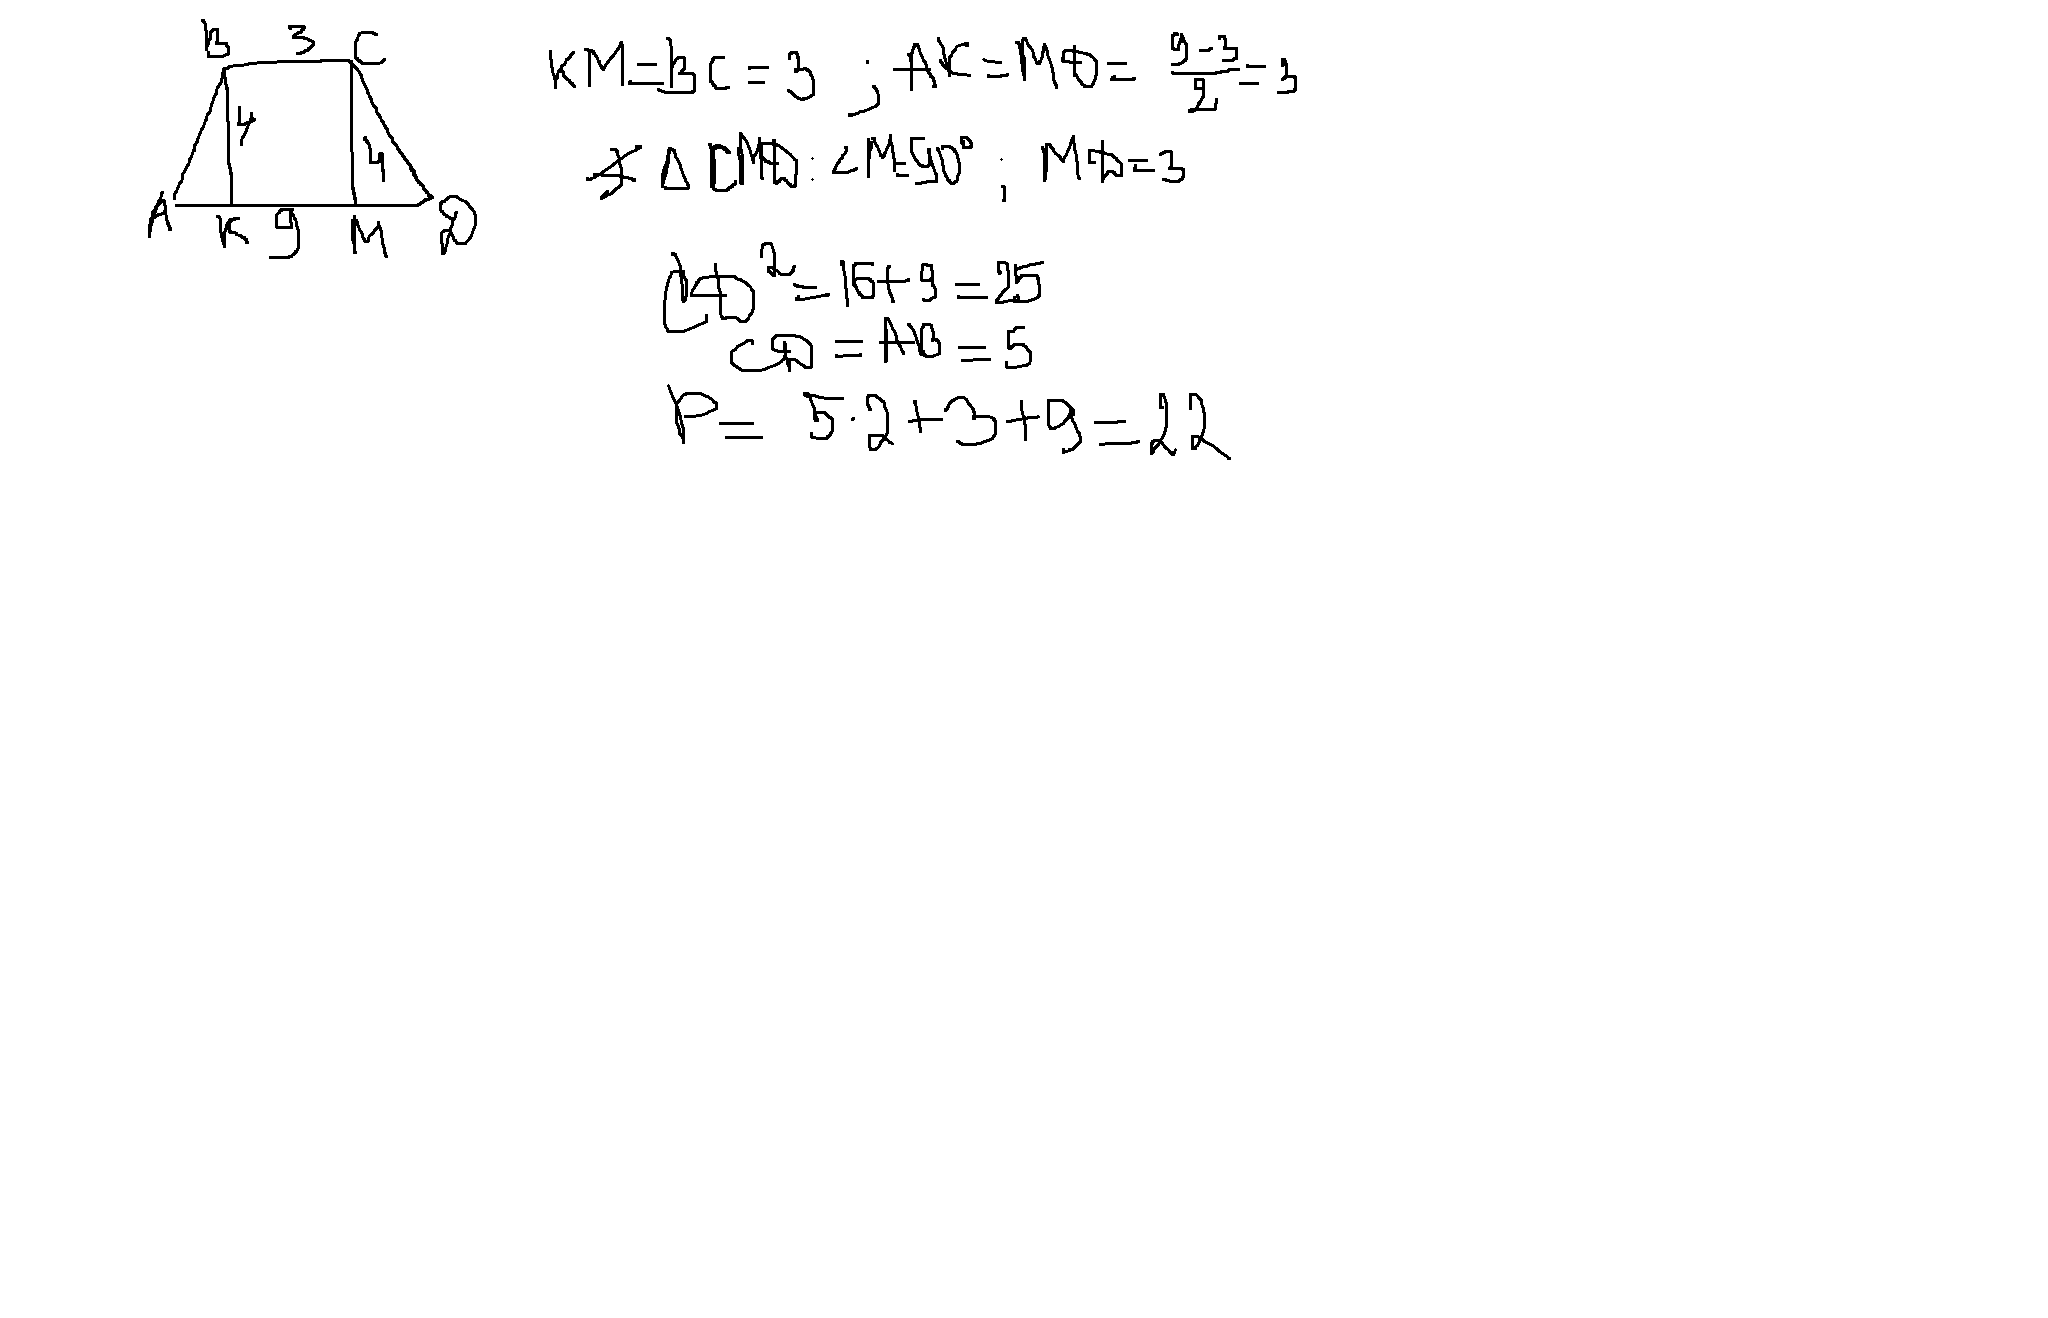 B 3 C
4 4
A K 9 M D
KM=BC=3 ; AK=MD= (9-3)/2=3
△ CMD: ∠M=90°; MD=3
CD²=16+9=25
CD=AB=5
P= 5·2+3+9=22